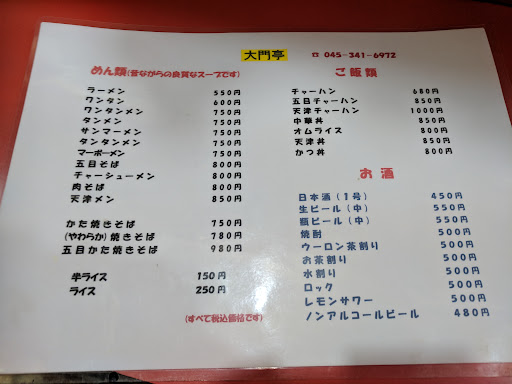 大門亭
☎ 045-341-6972
めん類(昔ながらの良質なスープです)
ラーメン 550円
ワンタン 600円
ワンタンメン 750円
タンメン 750円
サンマーメン 750円
タンタンメン 750円
マーボーメン 750円
五目そば 800円
チャーシューメン 800円
肉そば 800円
天津メン 850円
かた焼きそば 750円
(やわらか)焼きそば 780円
五目かた焼きそば 980円
半ライス 150円
ライス 250円
(すべて税込価格です)
ご飯類
チャーハン 680円
五目チャーハン 850円
天津チャーハン 1000円
中華丼 850円
オムライス 800円
天津丼 850円
かつ丼 800円
お酒
日本酒(1号) 450円
生ビール(中) 550円
瓶ビール(中) 550円
焼酎 500円
ウーロン茶割り 500円
お茶割り 500円
水割り 500円
ロック 500円
レモンサワー 500円
ノンアルコールビール 480円